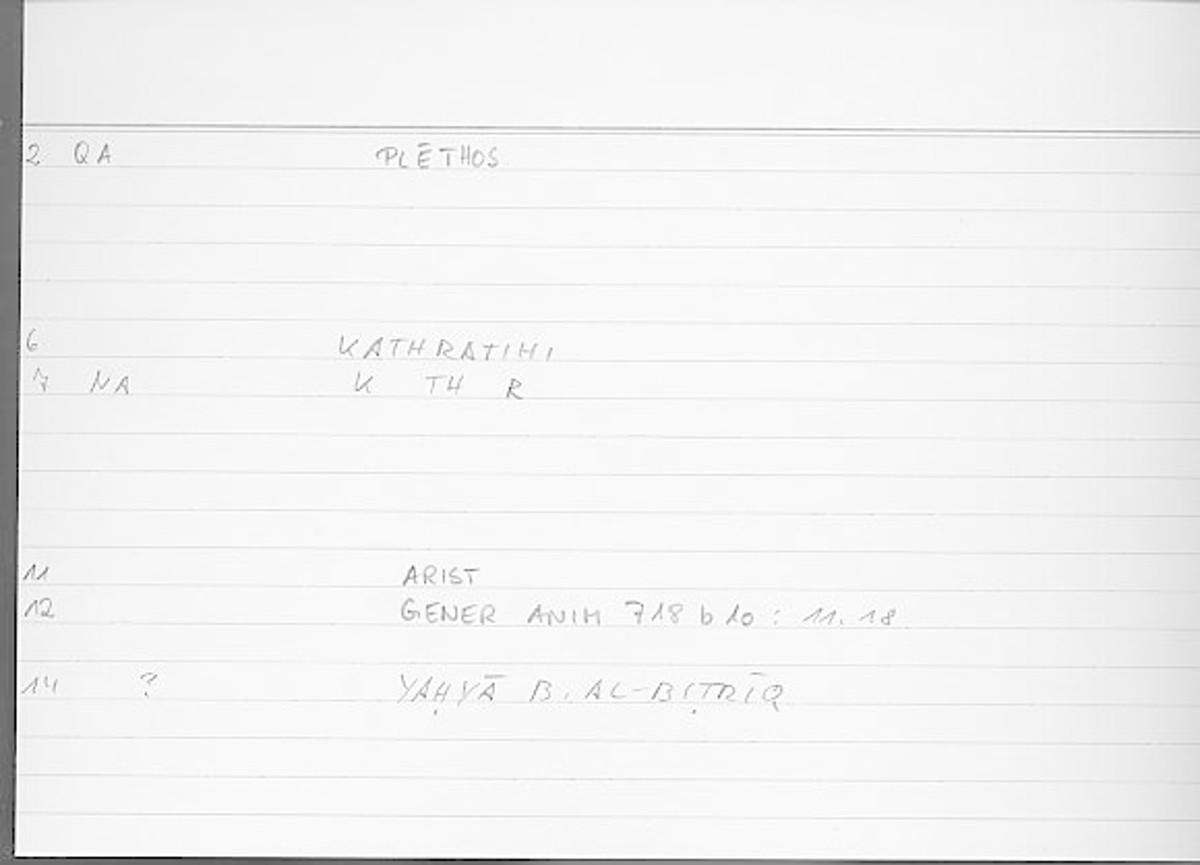 2 QA PLĒTHOS
6 KATHRATIHI
7 NA K TH R
11 ARIST
12 GENER ANIM 718 b 10 : 11.18
14 ? YAḤYĀ B. AL-BIṬRĪQ